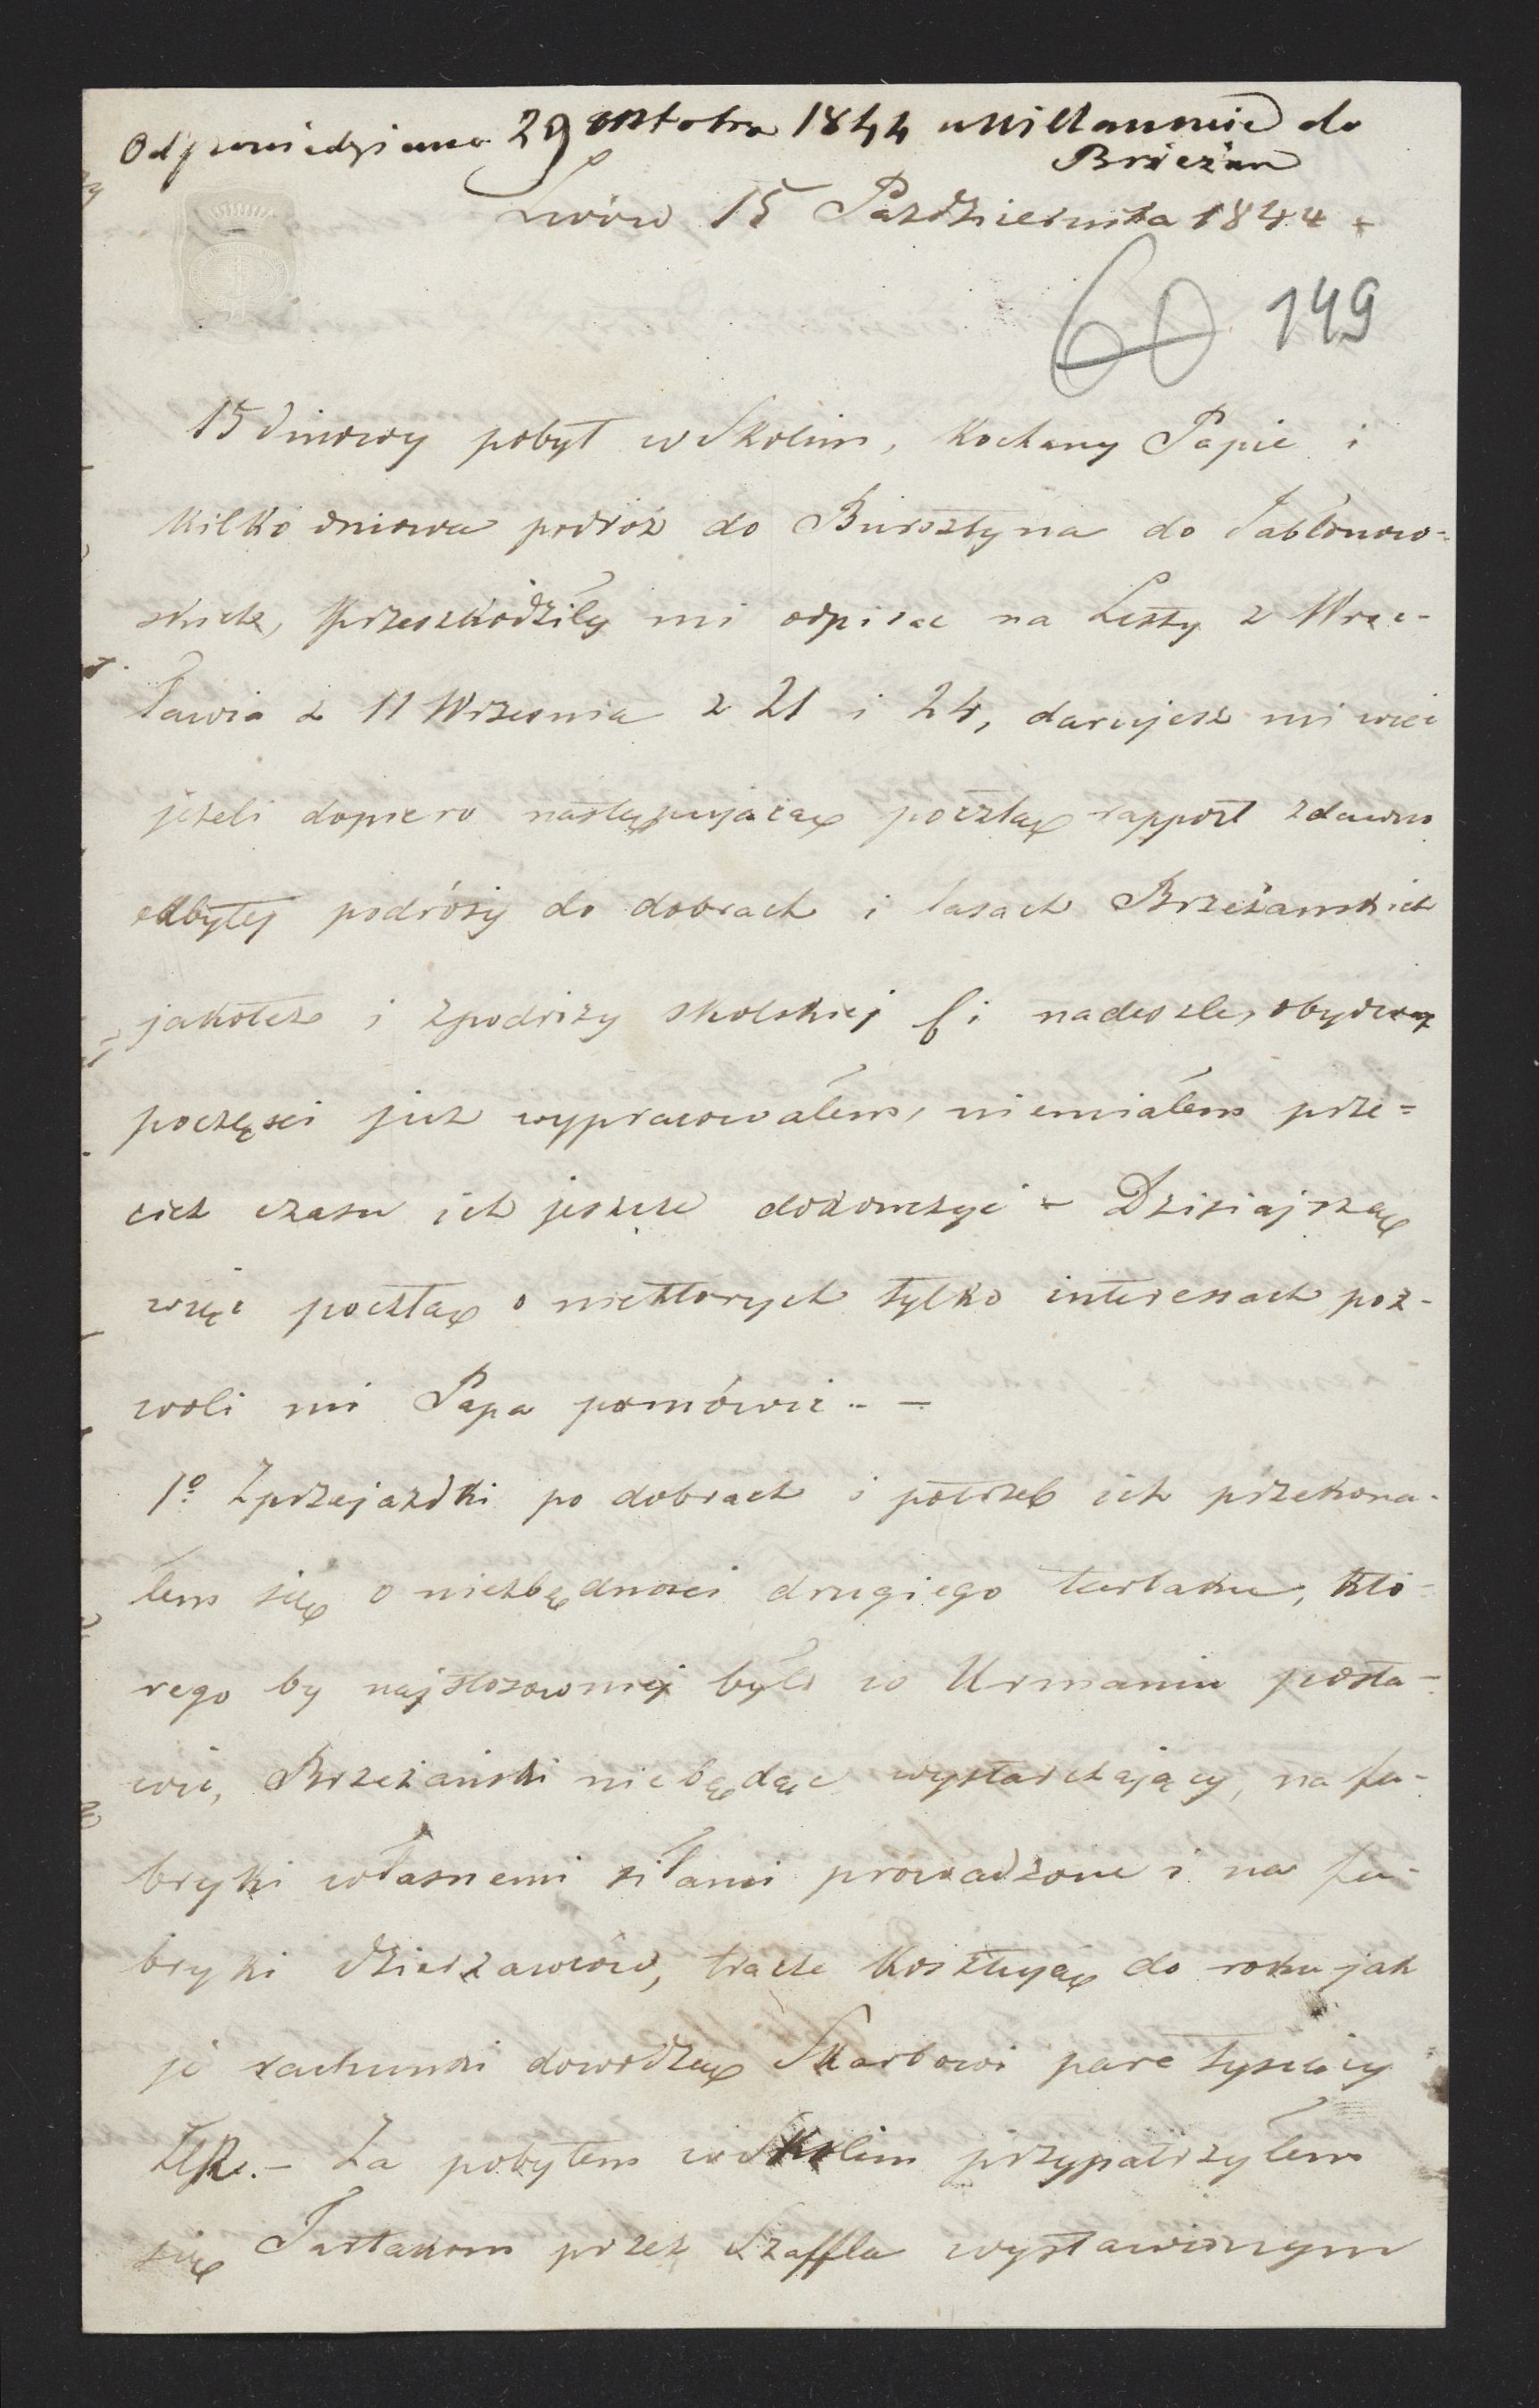 Odpowiedziano 29 octobra 1844 w Willanowie do
Brzeżan
Lwów 15 Października 1844
60 149
15 dniowy pobyt w Skolim, Kochany Papie i
kilko dniowa podróż do Bursztyna do Jabłonow-
skich, przeszkodziły mi odpisac na Listy z Wroc-
ławia z 11 Wrzesnia z 21 i 24, darujesz mi wiec
jeżeli dopiero następującą pocztą rapport zdawno
odbytej podróży do dobrach i lasach Brzeżanskich
jakotez i zpodrózy skolskiej Ci nadeszle, obydwa
poczęsci juz wypracowałem, niemiałem prze=
ciez czasu ich jeszcze dokonczyć - Dzisiajszą
więc pocztą o niektorych tylko interessach poz-
woli mi Papa pomówic.. -
1º Zprzejazdki po dobrach i potrzeb ich przekona-
łem się o niezbędnosci drugiego tartaku, któ-
rego by najstosowniej było w Urmaniu posta-
wić, Brzeżański niebędąc wystarczający, na fa-
bryki własnemi siłami prowadzone i na fa-
bryki dzierzawców, tracze kosztują do roku jak
je rachunki dowodzą Skarbowi pare tysięcy
ZłRe. - Za pobytem w Skolim przypatrzyłem
się Tartakom przez Szaffla wystawionym